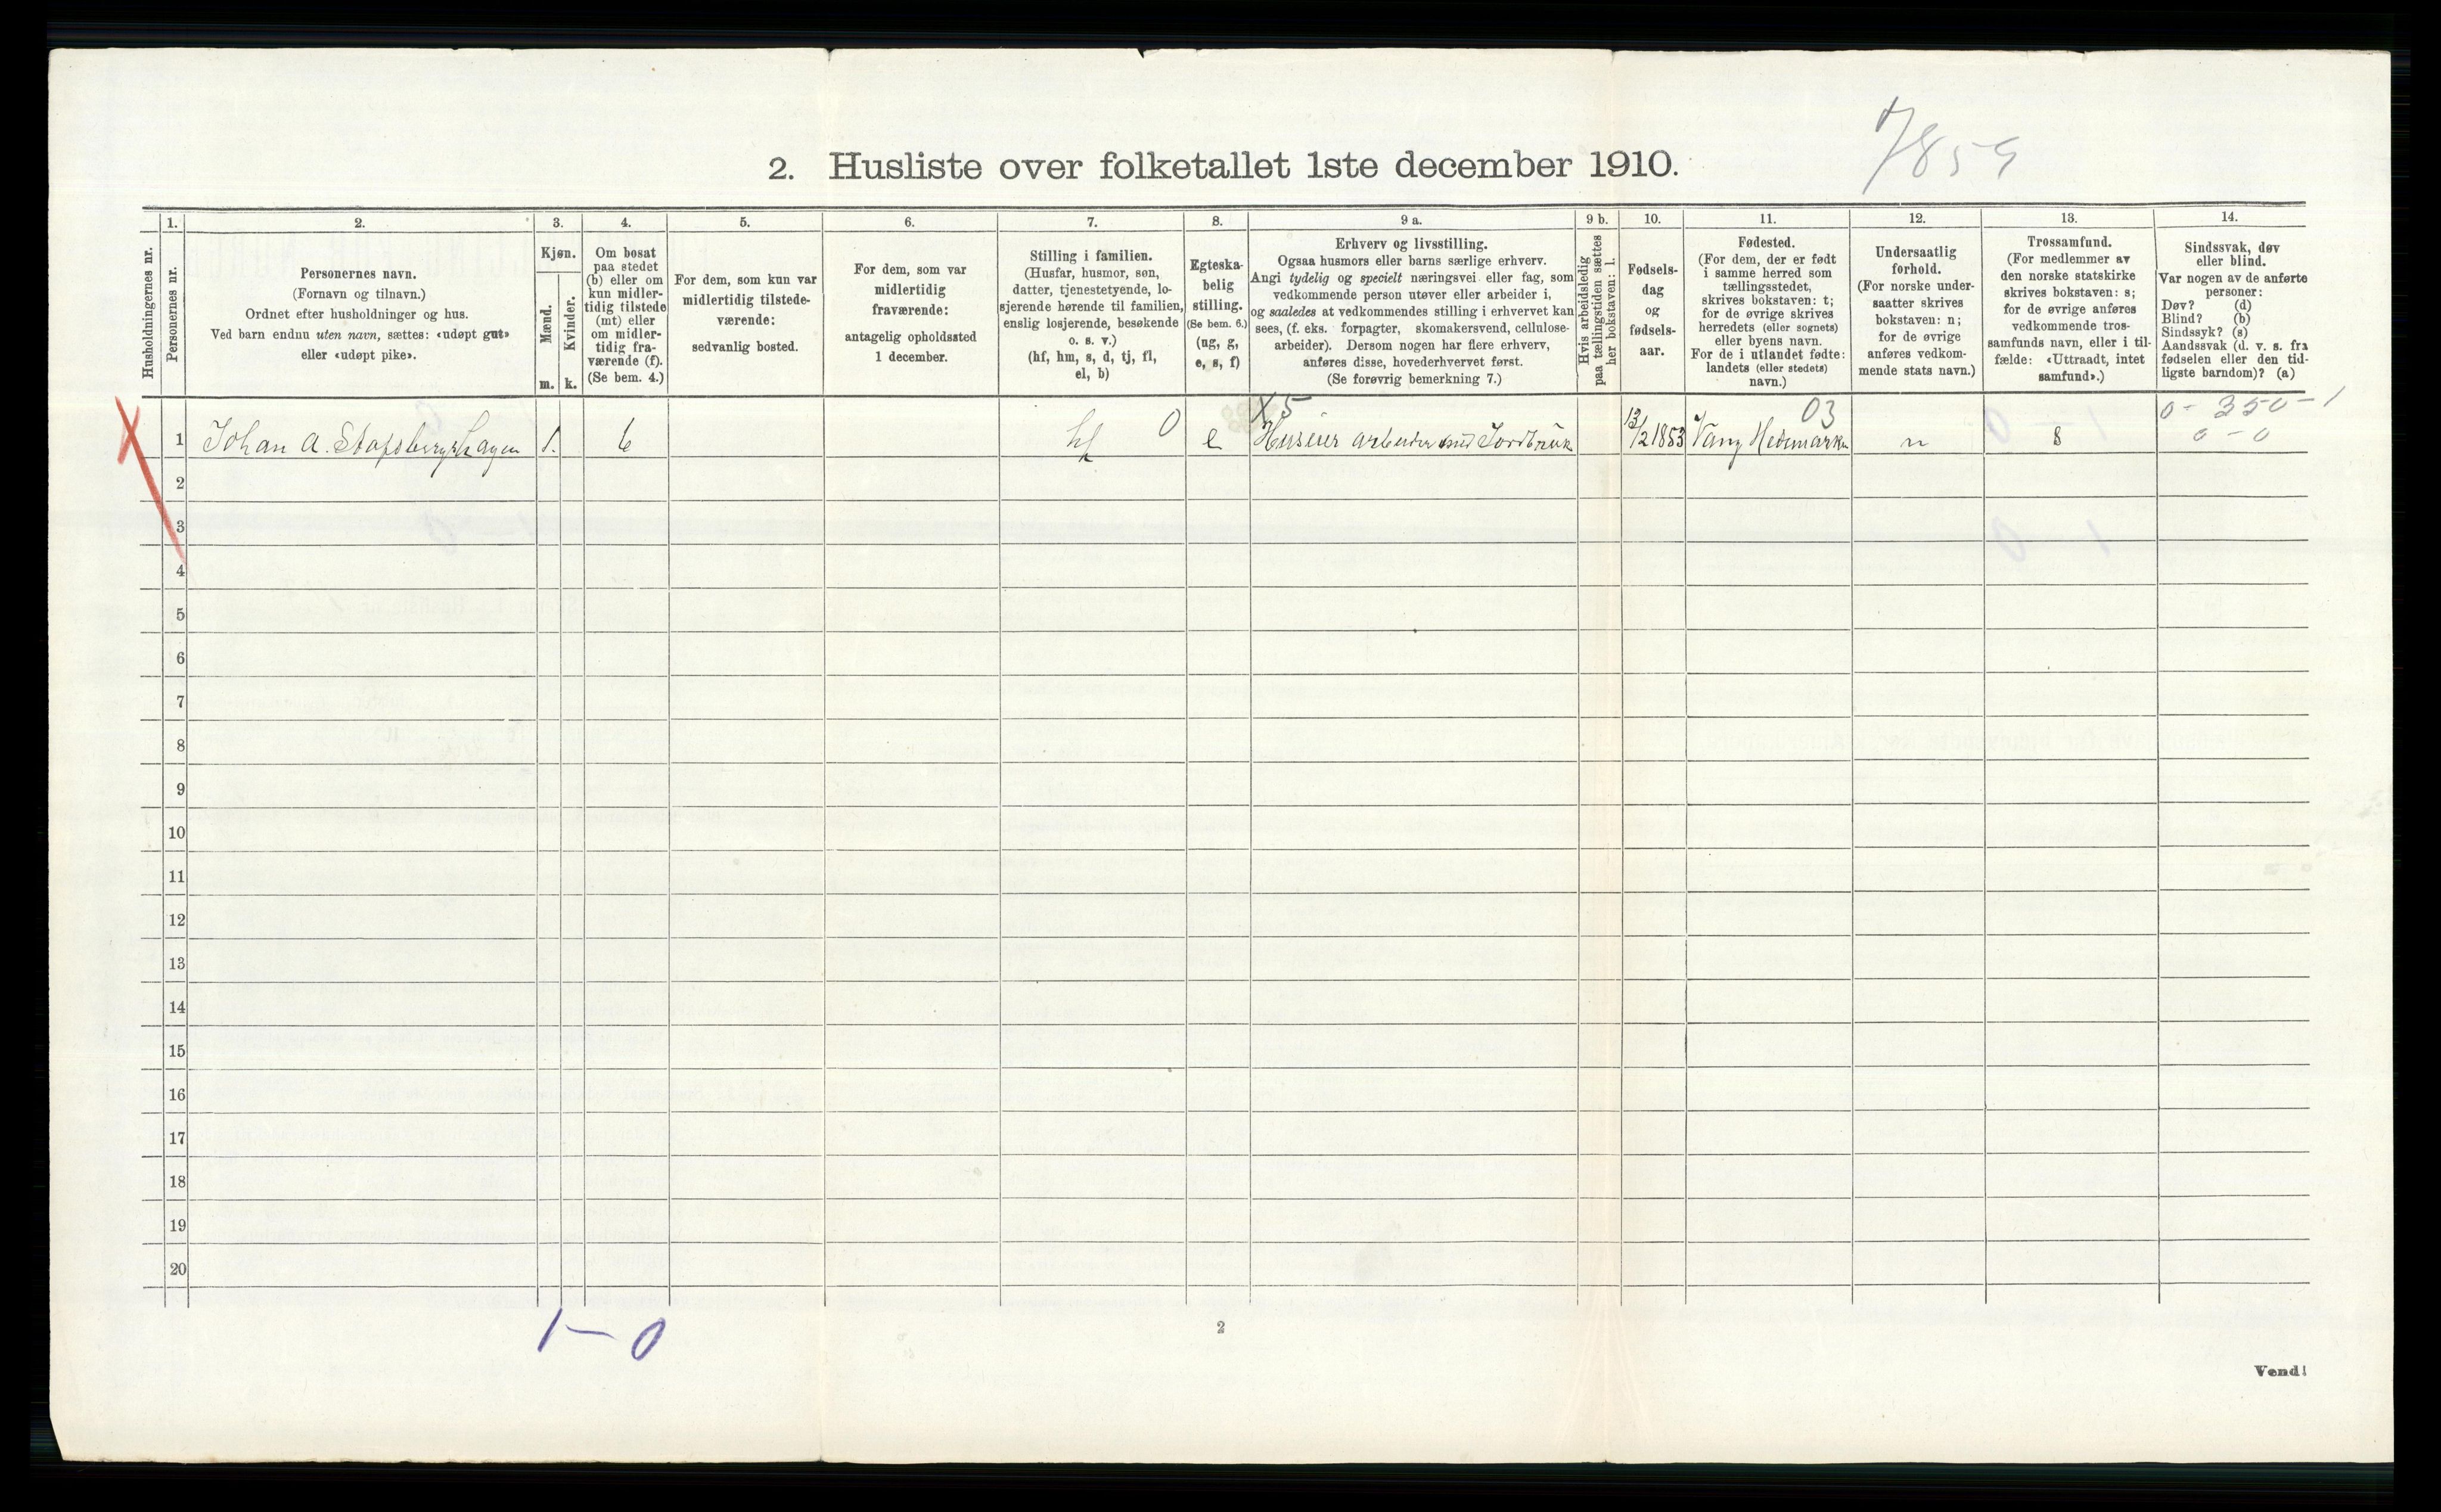 7859
2. Husliste over folketallet 1ste december 1910.
Husholdningernes nr.
1.
Personernes nr.
2.
Personernes navn.
(Fornavn og tilnavn.)
Ordnet efter husholdninger og hus.
Ved barn endnu uten navn, sættes: «udøpt gut»
eller «udøpt pike».
3.
Kjøn.
Mænd.
Kvinder.
m.
k.
4.
Om bosat
paa stedet
(b) eller om
kun midler-
tidig tilstede
(mt) eller
om midler-
tidig fra-
værende (f).
(Se bem. 4.)
5.
For dem, som kun var
midlertidig tilstede-
værende:
sedvanlig bosted.
6.
For dem, som var
midlertidig
fraværende:
antagelig opholdssted
1 december.
7.
Stilling i familien.
(Husfar, husmor, søn,
datter, tjenestetyende, lo-
sjerende hørende til familien,
enslig losjerende, besøkende
o. s. v.)
(hf, hm, s, d, tj, fl,
el, b)
8.
Egteska-
belig
stilling.
(Se bem. 6.)
(ug, g,
e, s, f)
9 a.
Erhverv og livsstilling.
Ogsaa husmors eller barns særlige erhverv.
Angi tydelig og specielt næringsvei eller fag, som
vedkommende person utøver eller arbeider i,
og saaledes at vedkommendes stilling i erhvervet kan
sees, (f. eks. forpagter, skomakersvend, cellulose-
arbeider). Dersom nogen har flere erhverv,
anføres disse, hovederhvervet først.
(Se forøvrig bemerkning 7.)
9 b.
Hvis arbeidsledig
paa tællingstiden sættes
her bokstaven: l.
10.
Fødsels-
dag
og
fødsels-
aar.
11.
Fødested.
(For dem, der er født
i samme herred som
tællingsstedet,
skrives bokstaven: t;
for de øvrige skrives
herredets (eller sognets)
eller byens navn.
For de i utlandet fødte:
landets (eller stedets)
navn.)
12.
Undersaatlig
forhold.
(For norske under-
saatter skrives
bokstaven: n;
for de øvrige
anføres vedkom-
mende stats navn.)
13.
Trossamfund.
(For medlemmer av
den norske statskirke
skrives bokstaven: s;
for de øvrige anføres
vedkommende tros-
samfunds navn, eller i til-
fælde: «Uttraadt, intet
samfund».)
14.
Sindssvak, døv
eller blind.
Var nogen av de anførte
personer:
Døv? (d)
Blind? (b)
Sindssyk? (s)
Aandssvak (d. v. s. fra
fødselen eller den tid-
ligste barndom)? (a)
X 5 03 0 - 350 - 1
1 Johan A. Stafsbergshagen 1. b hf 0 e Huseier arbeider med Jordbruk 13/2 1853 Vang Hedemarken n s 0 - 0
2
3
4
5
6
7
8
9
10
11
12
13
14
15
16
17
18
19
20
1 — 0
2
Vend!